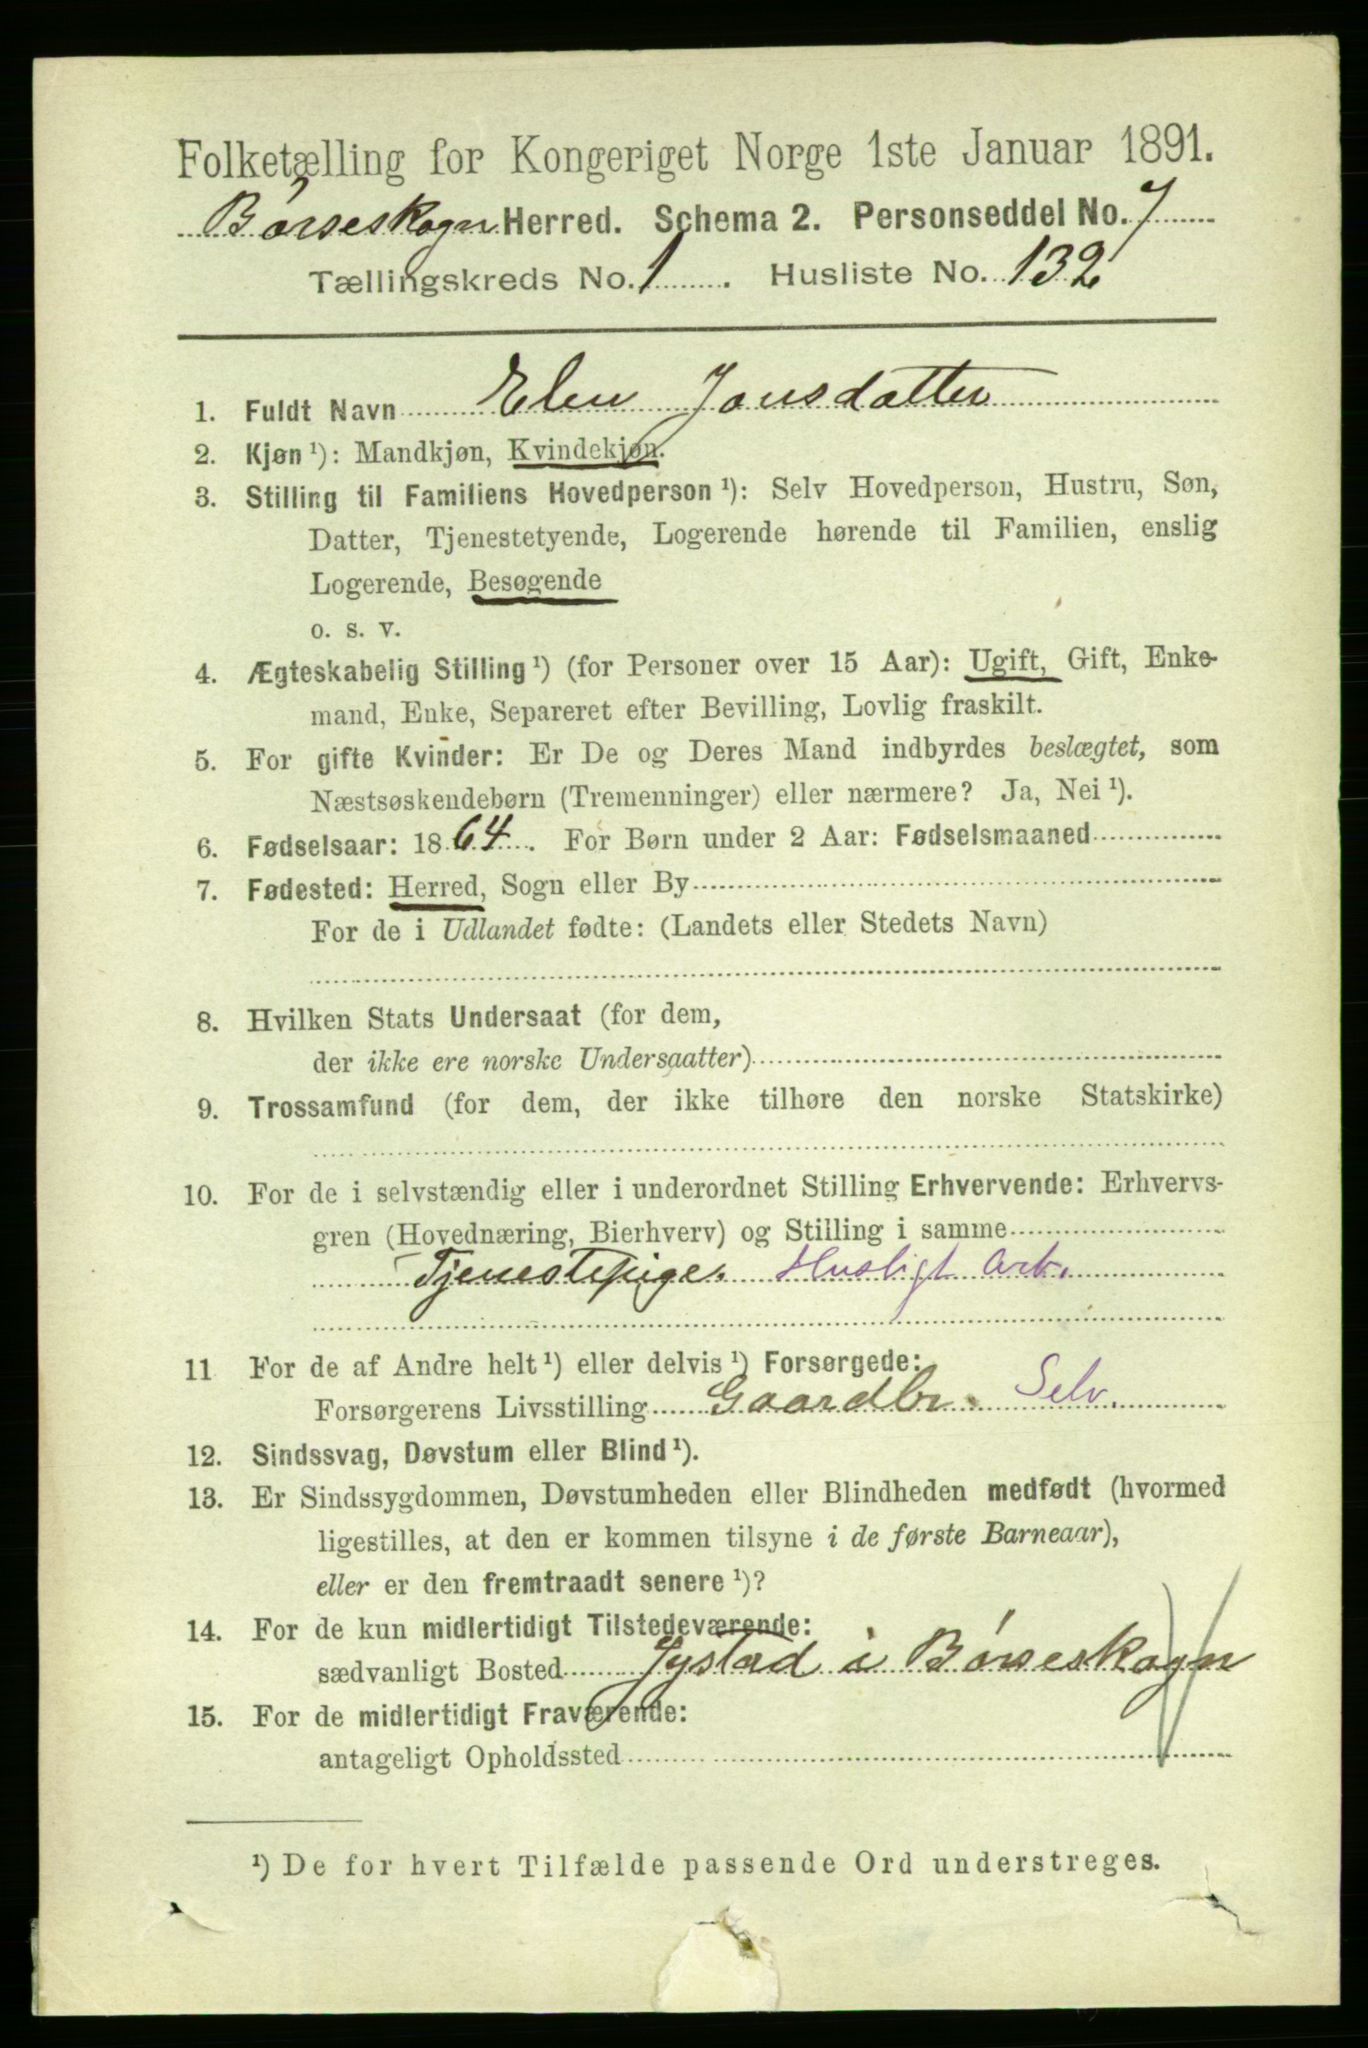 Folketælling for Kongeriget Norge 1ste Januar 1891.
Børseskogn Herred. Schema 2. Personseddel No. 7
Tællingskreds No. 1. Husliste No. 132
1. Fuldt Navn Elen Jonsdatter
2. Kjøn ¹): Mandkjøn, Kvindekjøn.
3. Stilling til Familiens Hovedperson ¹): Selv Hovedperson, Hustru, Søn,
Datter, Tjenestetyende, Logerende hørende til Familien, enslig
Logerende, Besøgende
o. s. v.
4. Ægteskabelig Stilling ¹) (for Personer over 15 Aar): Ugift, Gift, Enke-
mand, Enke, Separeret efter Bevilling, Lovlig fraskilt.
5. For gifte Kvinder: Er De og Deres Mand indbyrdes beslægtet, som
Næstsøskendebørn (Tremenninger) eller nærmere? Ja, Nei ¹).
6. Fødselsaar: 1864. For Børn under 2 Aar: Fødselsmaaned
7. Fødested: Herred, Sogn eller By
For de i Udlandet fødte: (Landets eller Stedets Navn)
8. Hvilken Stats Undersaat (for dem,
der ikke ere norske Undersaatter)
9. Trossamfund (for dem, der ikke tilhøre den norske Statskirke)
10. For de i selvstændig eller i underordnet Stilling Erhvervende: Erhvervs-
gren (Hovednæring, Bierhverv) og Stilling i samme
Tjenestepige. Husligt Arb.
11 For de af Andre helt ¹) eller delvis ¹) Forsørgede:
Forsørgerens Livsstilling Gaardbr. Selv.
12. Sindssvag, Døvstum eller Blind ¹).
13. Er Sindssygdommen, Døvstumheden eller Blindheden medfødt (hvormed
ligestilles, at den er kommen tilsyne i de første Barneaar),
eller er den fremtraadt senere ¹)?
14. For de kun midlertidigt Tilstedeværende:
sædvanligt Bosted Jystad i Børseskogn
15. For de midlertidigt Fraværende:
antageligt Opholdssted
¹) De for hvert Tilfælde passende Ord understreges.